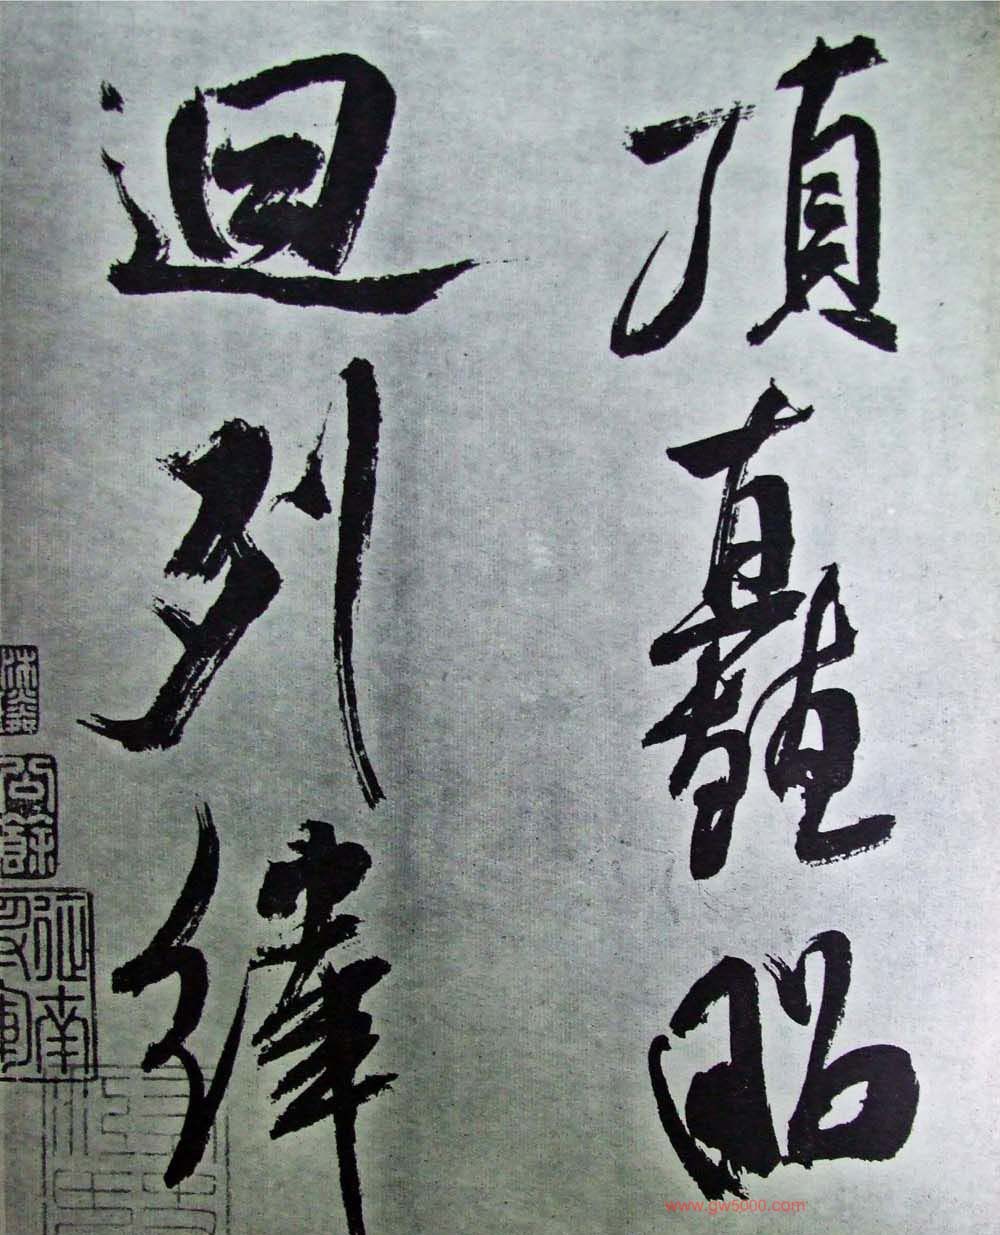 頂矗昭
迴列緯
www.gw5000.com